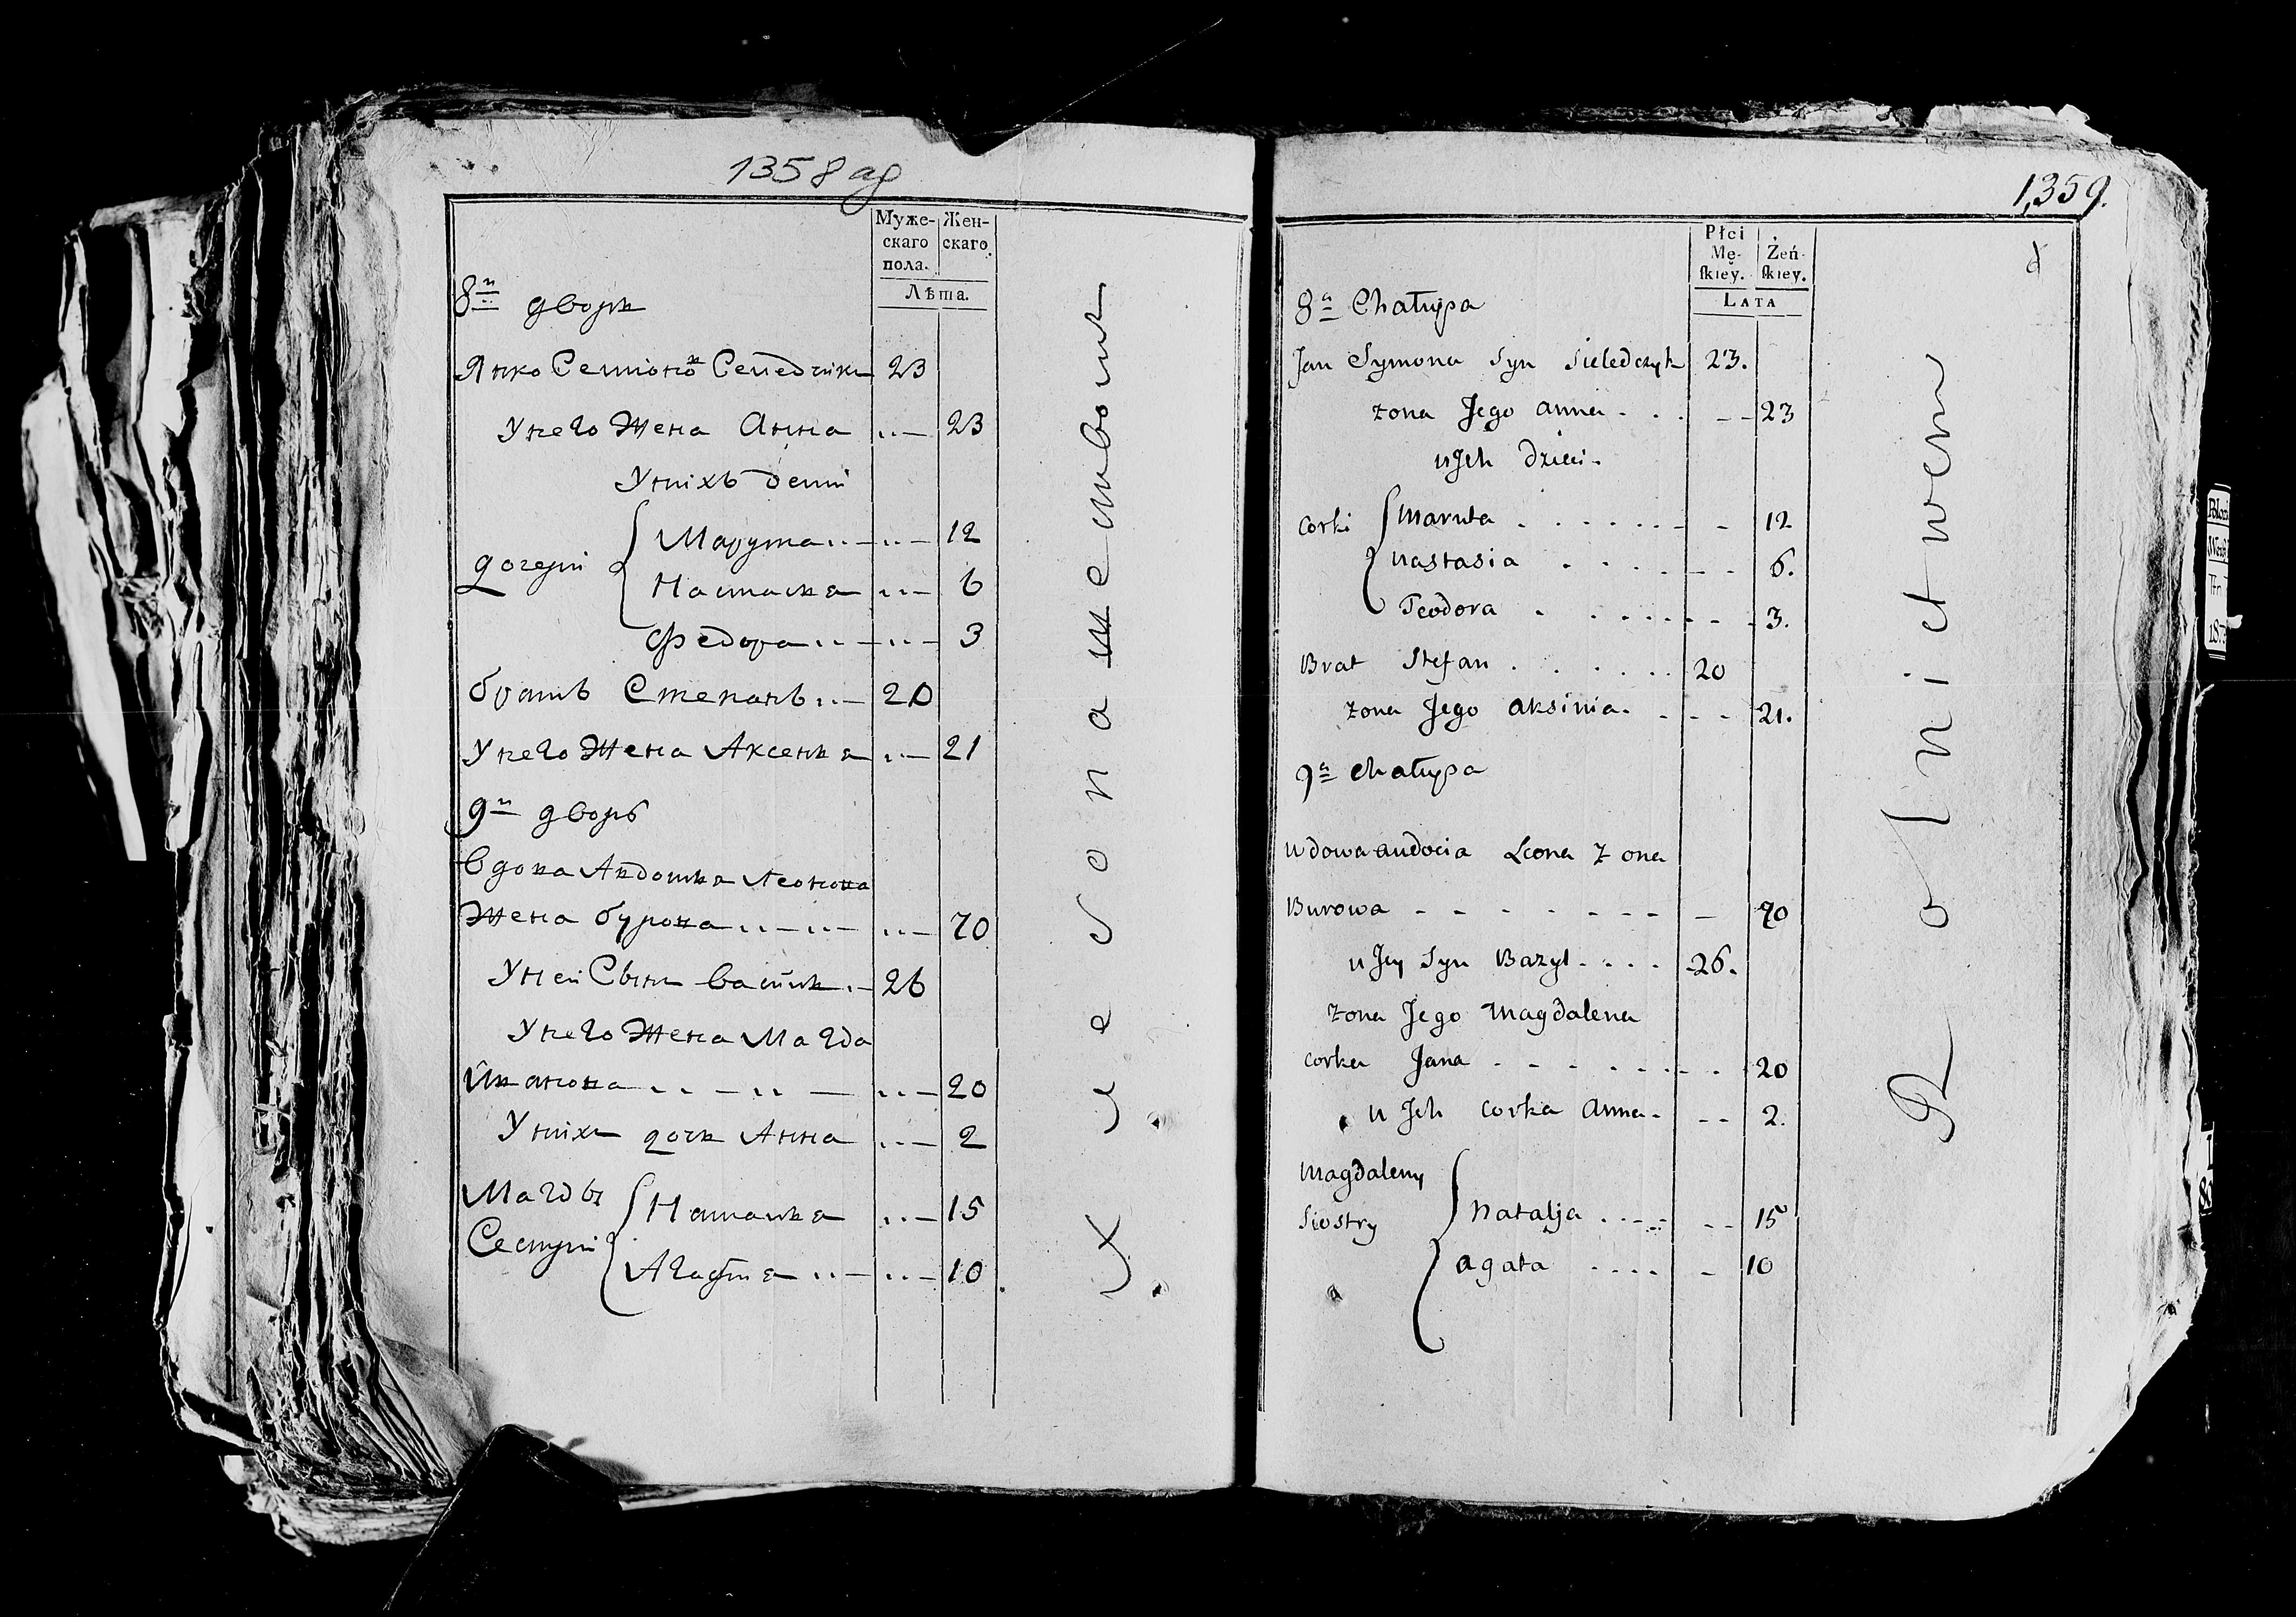 1358 об
Муже-
скаго
пола.
Жен-
скаго.
Лѣта.
8й дворъ
Янко Семіонов Селедчикъ 23
У него Жена Анна 23
У ніхъ деті
дочери
Марута 12
Настасья 6
Федора 3
братъ Степанъ 20
У него Жена Аксенья 21
9й дворъ
Вдова Авдотья Леонова
Жена бурова 70
У ней Сынъ Василь 26
У него Жена Магда
Иванова 20
У ніхъ дочь Анна 2
Магды
Сестри
Наталья 15
Агафія 10
Хлебопашествомъ
1359.
Płci
Mę-
ſkiey.
Żeń-
ſkiey.
LATA
8a Chałupa
Jan Symona Syn Sieledczyk 23.
zona Jego anna 23
u Jch dzieci
Corki
Maruta 12
Nastasia 6.
Teodora 3.
Brat Stefan 20
zona Jego aksinia 21.
9a Chałupa
Wdowa audocia Leona zona
Burowa 70
u Jey Syn Bazyl 26.
zona Jego Magdalena
corka Jana 20
u Jch corka anna 2.
Magdaleny
Siostry
Natalja 15
agata 10
Rolnictwem